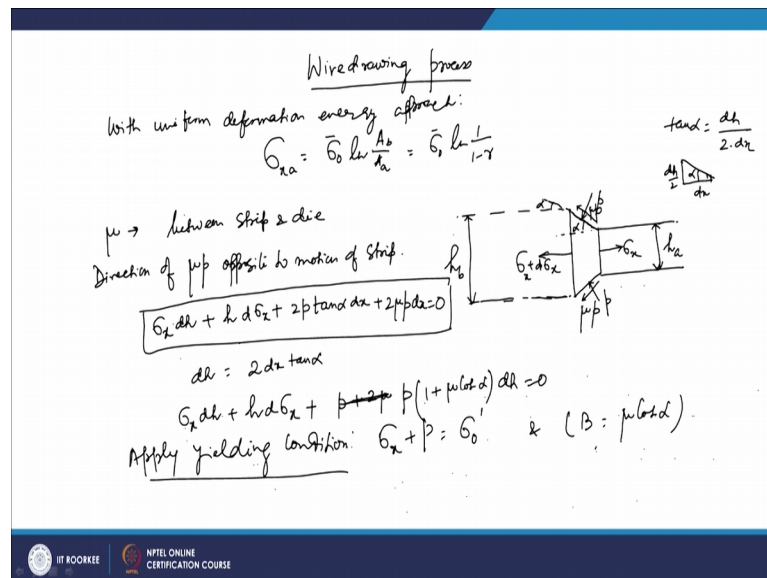 Wiredrawing process
With uniform deformation energy approach:
σ_xa = σ̄_0 ln A_b/A_a = σ̄_0 ln 1/(1-r)
tanα = dh/(2.dx)
dh/2 α dx
μ → between strip & die
Direction of μp opposite to motion of strip.
h_b α α μp p σ_x+dσ_x σ_x h_a μp p
σ_x dh + h dσ_x + 2p tanα dx + 2μp dx = 0
dh = 2dx tanα
σ_x dh + h dσ_x + p(1 + μ Cot α) dh = 0
Apply yielding condition: σ_x + p = σ_0' & (B = μ Cot α)
IIT ROORKEE
NPTEL ONLINE
CERTIFICATION COURSE